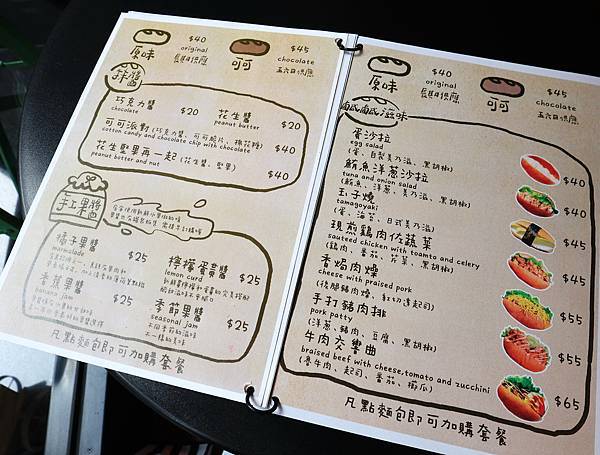 原味
$40
original
長期供應
可可
$45
chocolate
五六日供應
抹醬
巧克力醬
chocolate
$20
花生醬
peanut butter
$20
可可派對(巧克力醬、可可脆片、棉花糖)
cotton candy and chocolate chip with chocolate
$40
花生堅果再一起(花生醬、堅果)
peanut butter and nut
$40
手工果醬
橘子果醬
marmalade
$25
檸檬蛋黃醬
lemon curd
$25
香蕉果醬
banana jam
$25
季節果醬
seasonal jam
不同季節的滋味
不一樣的美味
$25
凡點麵包即可加購套餐
原味
$40
original
長期供應
可可
$45
chocolate
五六日供應
鹹鹹滋味
蛋沙拉
egg salad
(蛋、自製美乃滋、黑胡椒)
$40
鮪魚洋蔥沙拉
tuna and onion salad
(鮪魚、洋蔥、美乃滋、黑胡椒)
$40
玉子燒
tamagoyaki
(蛋、海苔、日式美乃滋)
$45
現煎鷄肉佐蔬菜
sauteed chicken with toamto and celery
(鷄肉、番茄、芹菜、黑胡椒)
$45
香焗肉燥
cheese with praised pork
(後腿豬肉燥、紅切達起司)
$55
手打豬肉排
pork patty
(洋蔥、豬肉、豆腐、黑胡椒)
$55
牛肉交響曲
braised beef with cheese,tomato and zucchini
(番牛肉、起司、番茄、櫛瓜)
$65
凡點麵包即可加購套餐